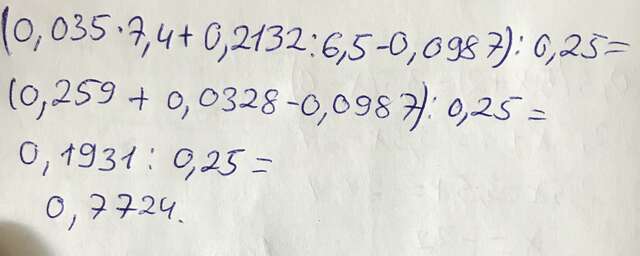 (0,035·7,4+0,2132:6,5-0,0987):0,25=
(0,259 + 0,0328-0,0987):0,25=
0,1931 : 0,25=
0,7724.